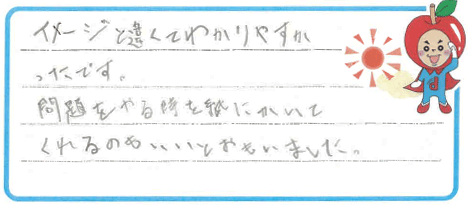 イメージと違くてわかりやすか
ったです。
問題をやる時を紙にかいて
くれるのもいいとおもいました。